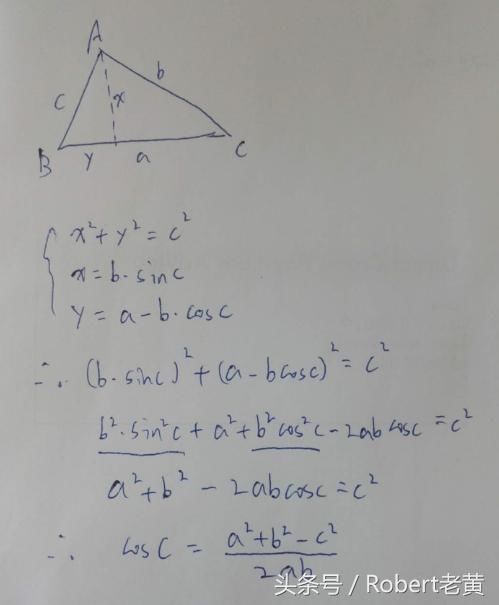 A
c x b
B y a C
x²+y²=c²
x=b·sinc
y=a-b·cosc
∴ (b·sinc)²+(a-bcosc)²=c²
b²·sin²c+a²+b²cos²c-2abcosc=c²
a²+b²-2abcosc=c²
∴ cosC=(a²+b²-c²)/2ab
头条号 / Robert老黄